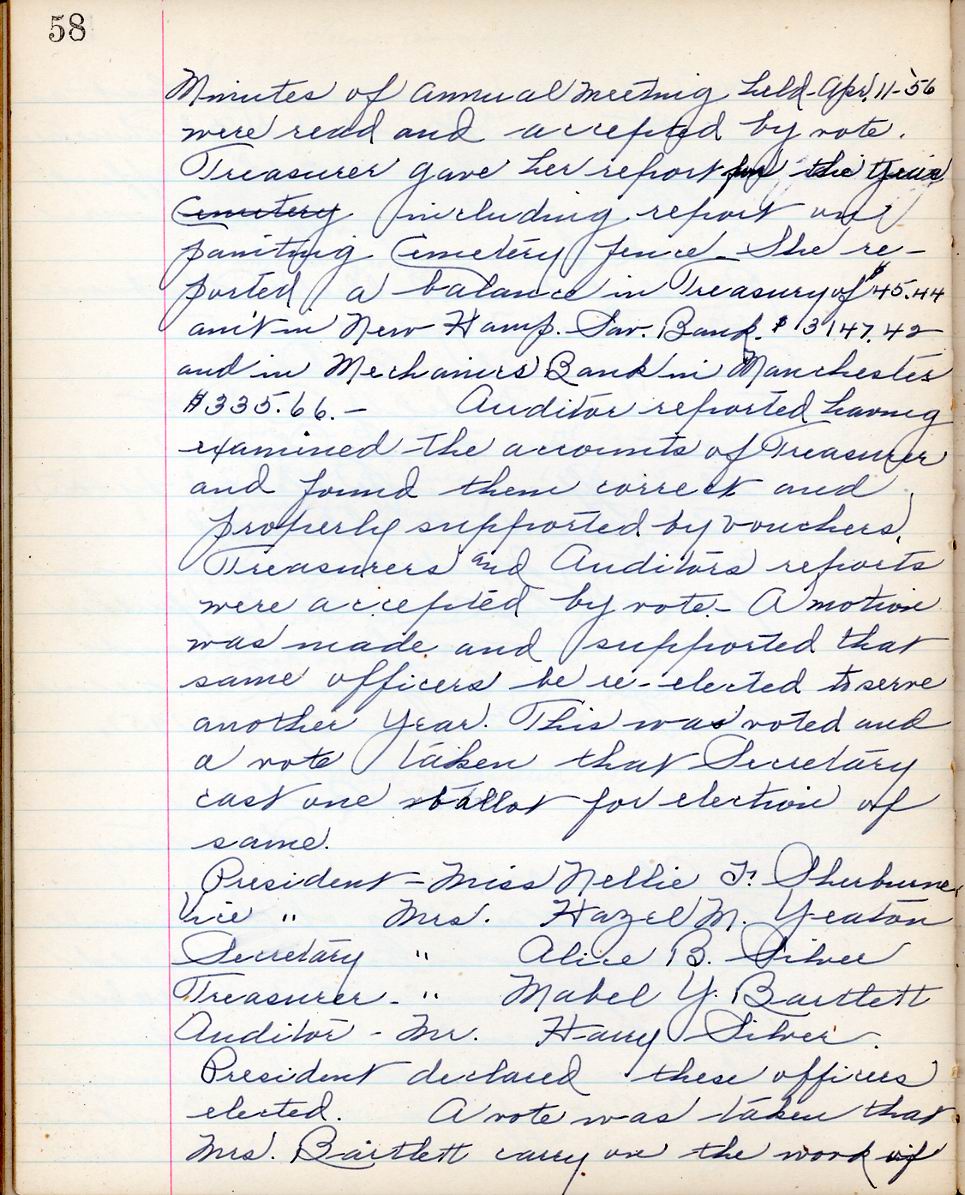 58
Minutes of annual meeting held Apr. 11-'56
were read and accepted by vote.
Treasurer gave her report for the year
Cemetery including report on
painting Cemetery fence. She re-
ported a balance in Treasury of $45.44
am't in New Hamp. Sav. Bank. $3147.42
and in Mechanics Bank in Manchester
$335.66.— Auditor reported having
examined the accounts of Treasurer
and found them correct and
properly supported by vouchers.
Treasurers and Auditors reports
were accepted by vote- A motion
was made and supported that
same officers be re-elected to serve
another year. This was voted and
a vote taken that Secretary
cast one ballot for election of
same.
President - Miss Nellie F. Sherburne
Vice " Mrs. Hazel M. Yeaton
Secretary " Alice B. Silver
Treasurer - " Mabel Y. Bartlett
Auditor - Mr. Harry Silver.
President declared these officers
elected. A vote was taken that
Mrs. Bartlett carry on the work of